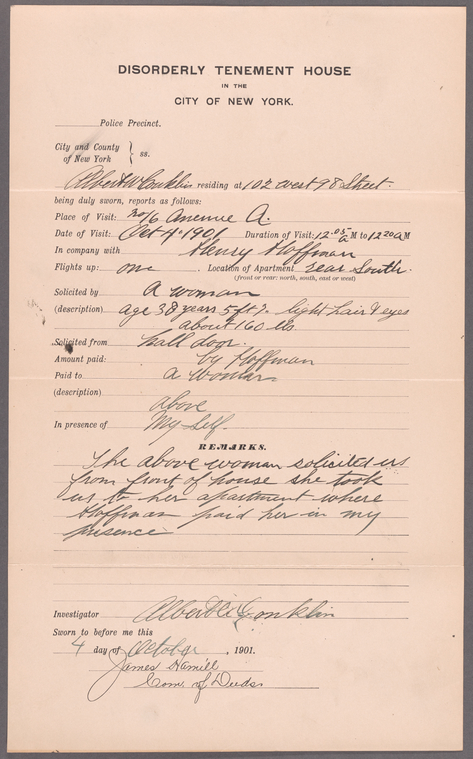 DISORDERLY TENEMENT HOUSE
IN THE
CITY OF NEW YORK.
Police Precinct.
City and County
of New York } ss.
Albert W Conklin residing at 102 West 98 Street
being duly sworn, reports as follows:
Place of Visit: No 16 Avenue A.
Date of Visit: Oct 4 - 1901 Duration of Visit: 12.05 A M to 12 20 A M
In company with Henry Hoffman
Flights up: one. Location of Apartment rear South.
(front or rear: north, south, east or west)
Solicited by A woman
(description) age 38 years 5 ft 7. light hair & eyes
about 160 lbs
Solicited from hall door.
Amount paid: by Hoffman
Paid to a woman
(description)
above
In presence of My self.
REMARKS.
The above woman solicited us
from front of house she took
us to her apartment where
Hoffman paid her in my
presence
Investigator Albert W Conklin
Sworn to before me this
4 day of October, 1901.
James Hamill
Com. of Deeds